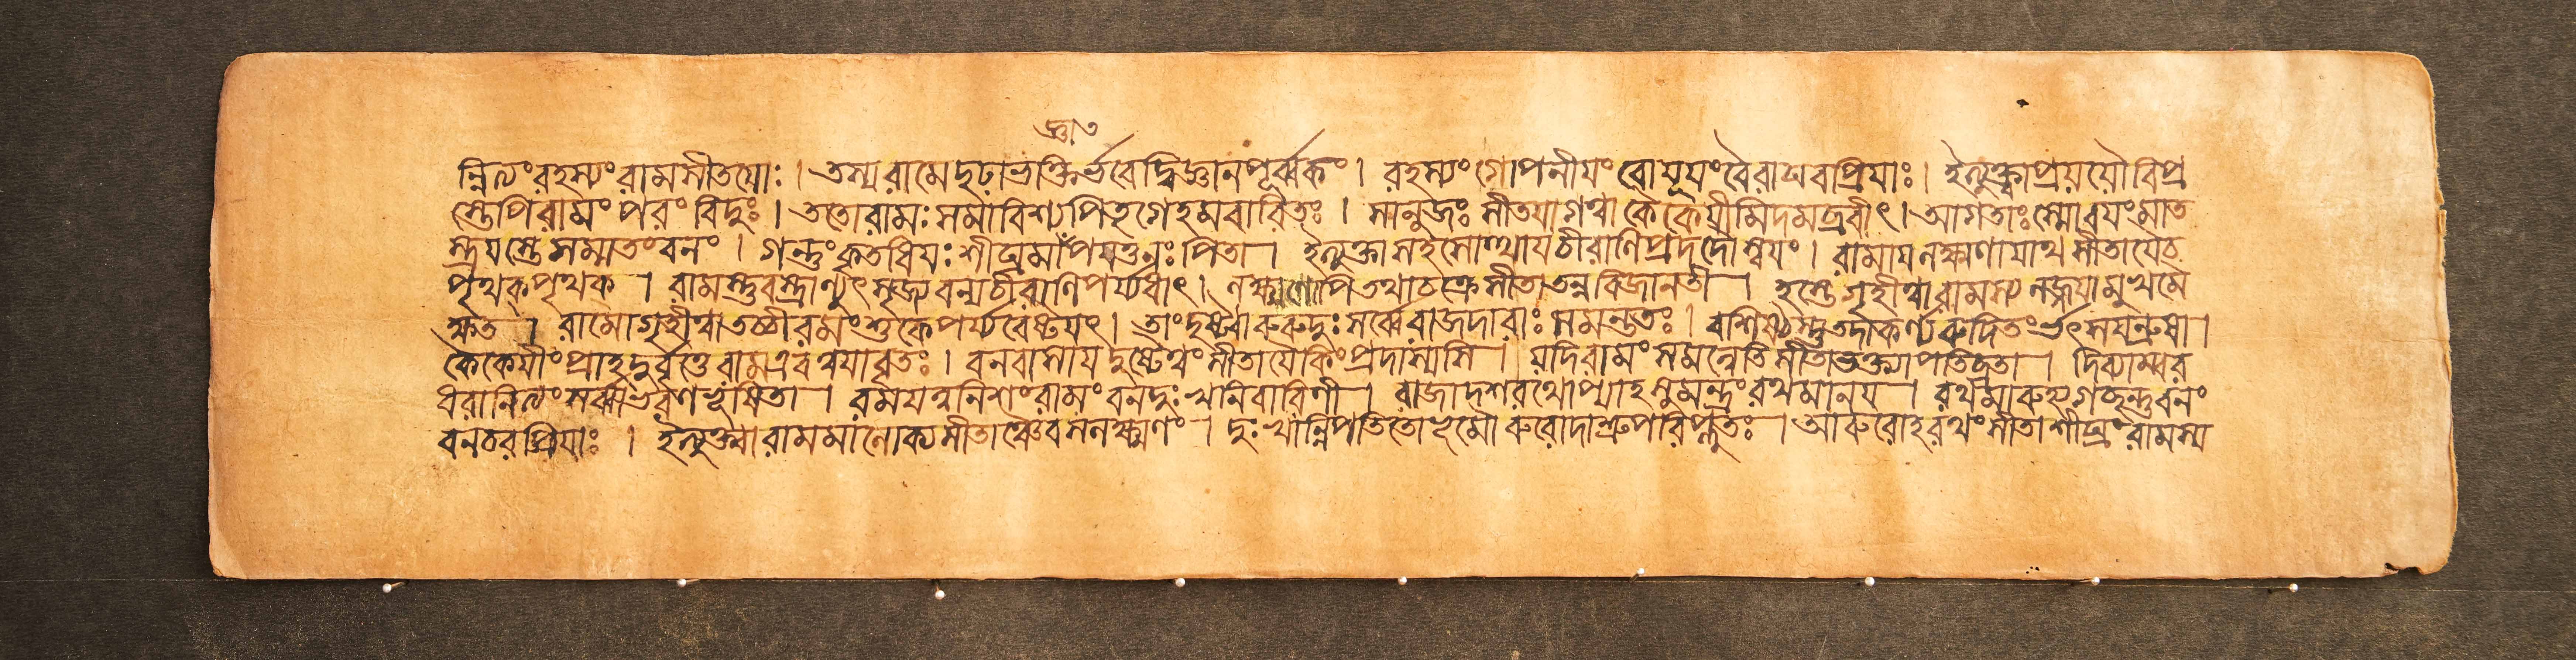 ক্তাত
ন্নিত্যং রহস্যং রামসীতয়োঃ । তস্য রামে দৃঢ়াভক্তির্ভবেদ্বিজ্ঞানপূর্ব্বকং । রহস্যং গোপনীয়ং বো যূয়ং বৈ রাঘবপ্রিয়াঃ । ইত্যুক্ত্বা প্রযযৌ বিপ্র
স্তেপি রামং পরং বিদুঃ । ততো রামঃ সমাবিশ্য পিতৃগেহমবারিতঃ । সানুজঃ সীতয়া গত্বা কৈকেয়ীমিদমব্রবীৎ । আগতাঃ স্মো বয়ং মাত
স্ত্রয়স্তে সম্মতং বনং । গন্তুং কৃতধিয়ঃ শীঘ্রমাজ্ঞাপয়তু নঃ পিতা । ইত্যুক্তা সহসোত্থায় চীরাণি প্রদদৌ স্বয়ং । রামায় লক্ষ্মণায়াথ সীতায়ৈ চ
পৃথক পৃথক । রামস্তু বস্ত্রাণ্যুৎসৃজ্য বন্যচীরাণি পর্য্যধাৎ । লক্ষ্মণোপি তথা চক্রে সীতা তন্ন বিজানতী । হস্তে গৃহীত্বা রামস্য লজ্জয়া মুখমৈ
ক্ষত । রামো গৃহীত্বা তচ্চীরমংশুকে পর্য্যবেষ্টয়ৎ । তাং দৃষ্ট্বা রুরুদুঃ সর্ব্বে রাজদারাঃ সমন্ততঃ । বশিষ্ঠস্তু তদাকর্ণ্য রুদিতং ভর্ৎসয়ন্রুষা ।
কৈকেয়ীং প্রাহ দুর্বৃত্তে রাম এব ত্বয়া বৃতঃ । বনবাসায় দুষ্টে ত্বং সীতায়ৈ কিং প্রদাস্যসি । যদি রামং সমন্বেতি সীতা ভক্ত্যা পতিব্রতা । দিব্যাম্বর
ধরা নিত্যং সর্ব্বাভরণভূষিতা । রময়ত্বনিশং রামং বনদুঃখনিবারিণী । রাজা দশরথোপ্যাহ সুমন্ত্রং রথমানয় । রথমারুহ্য গচ্ছন্তু বনং
বনচরপ্রিয়াঃ । ইত্যুক্ত্বা রামমালোক্য সীতাঞ্চৈব সলক্ষ্মণং । দুঃখান্নিপতিতো ভূমৌ রুরোদাশ্রুপরিপ্লুতঃ । আরুরোহ রথং সীতা শীঘ্রং রামস্য